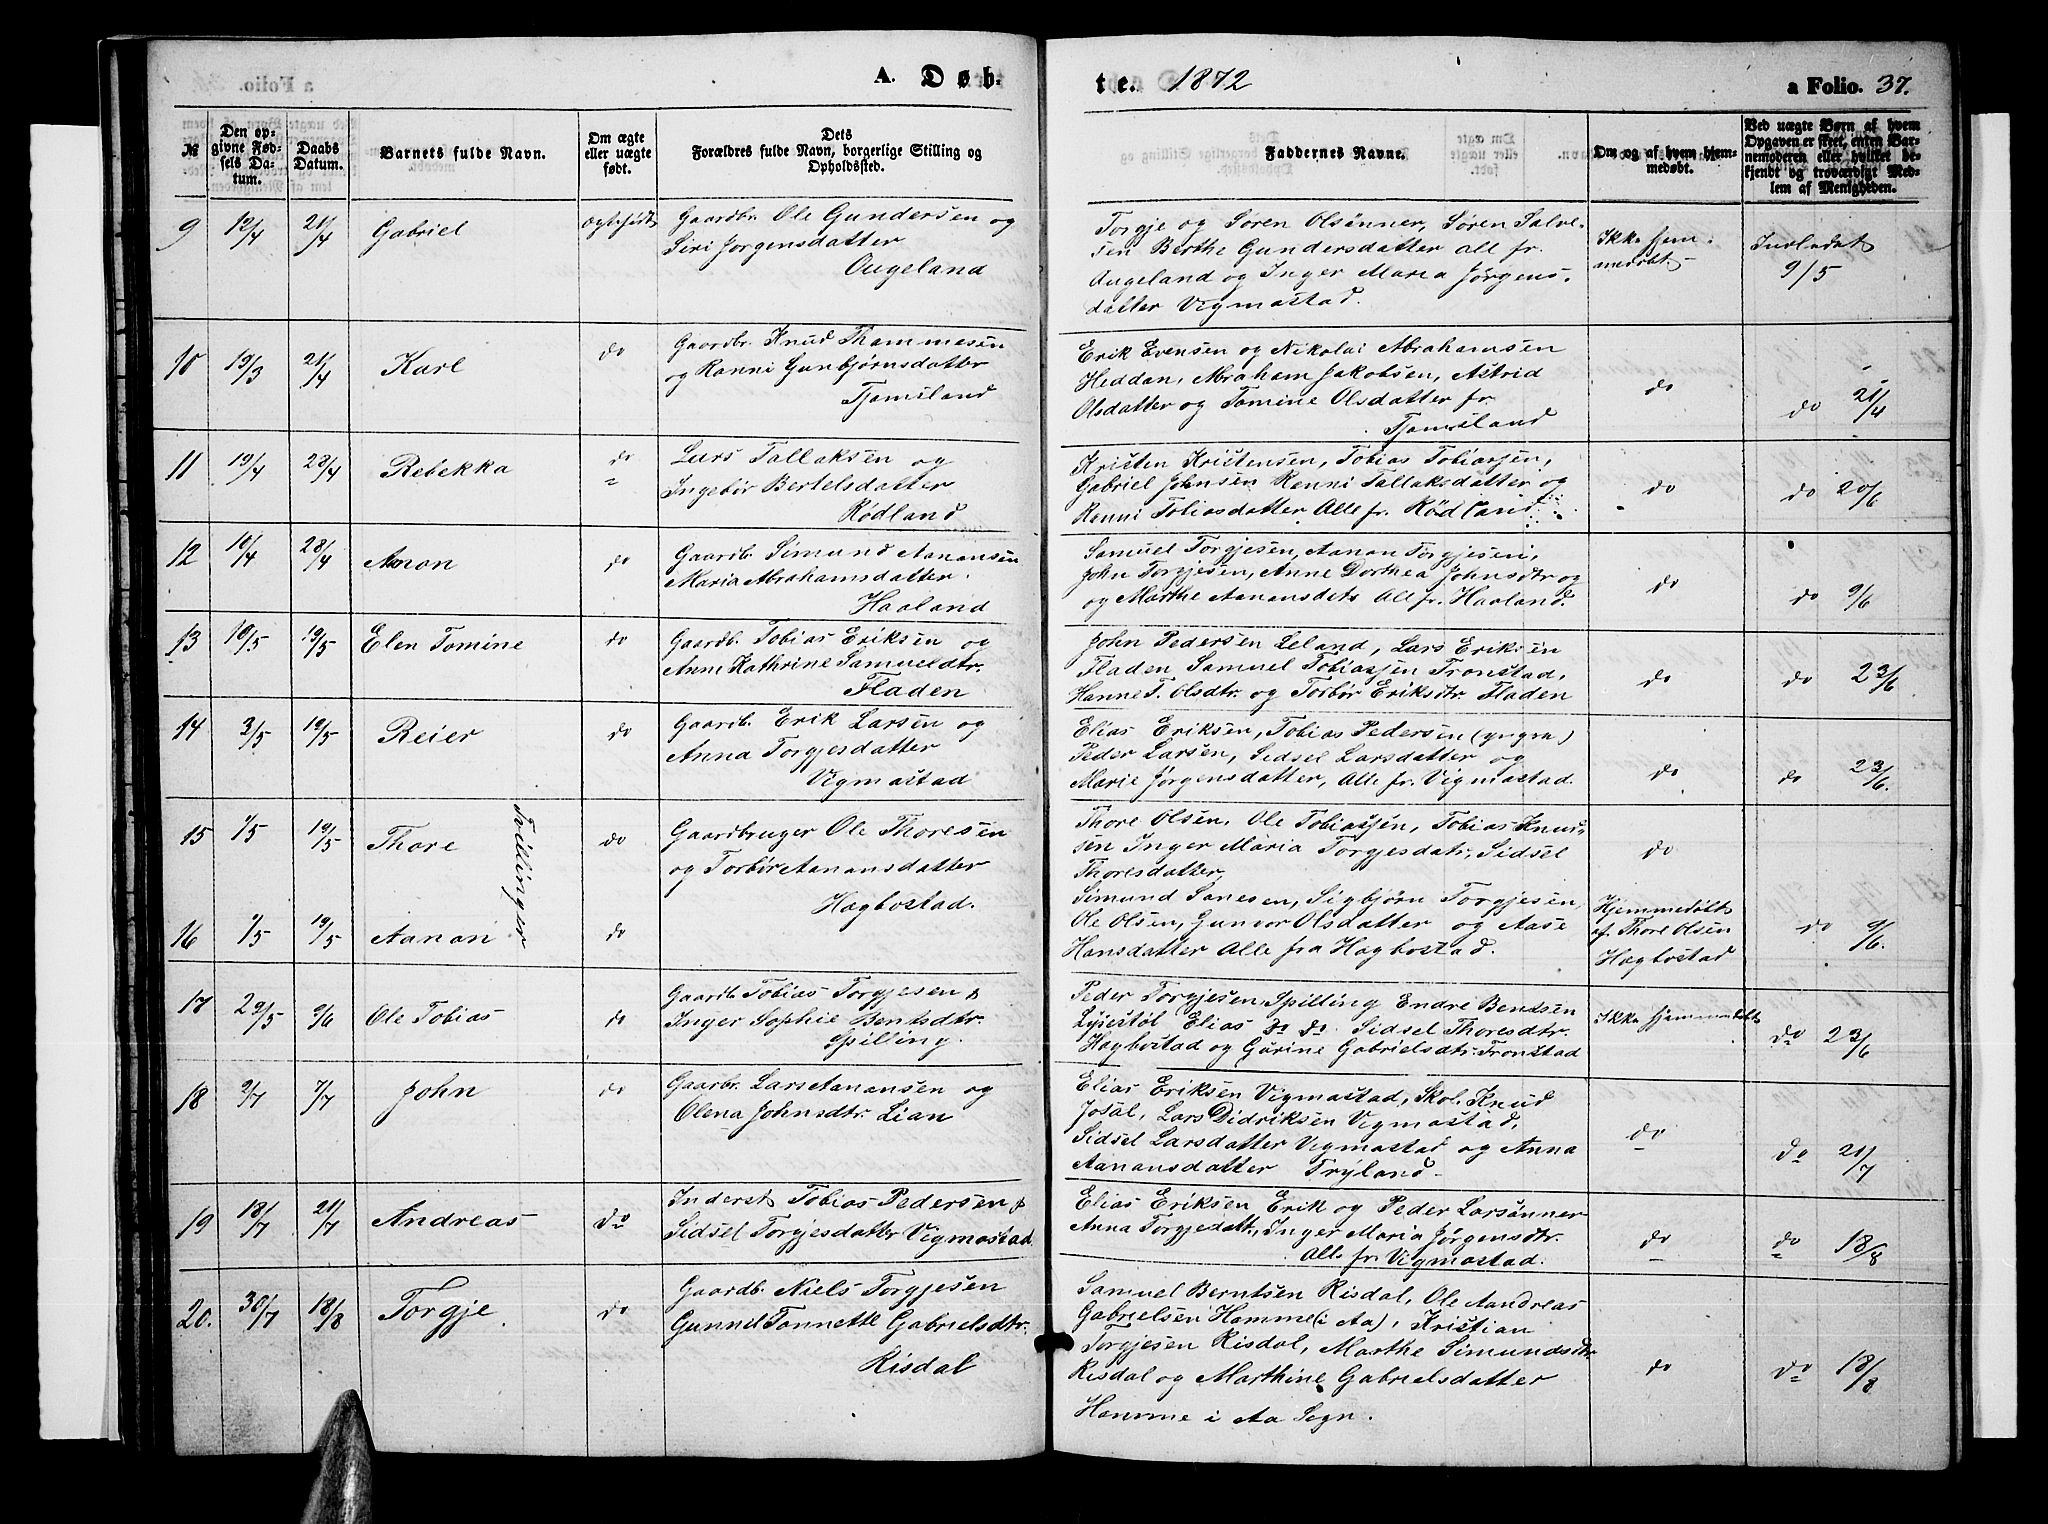 A. Døb-
te. 1872
a Folio. 37.
№
Den op-
givne Fød-
sels Da-
tum.
Daabs
Datum.
Barnets fulde Navn.
Om ægte
eller uægte
født.
Dets
Forældres fulde Navn, borgerlige Stilling og
Opholdssted.
Faddernes Navne.
Om og af hvem hjem-
medøbt.
Ved uægte Børn af hvem
Opgaven er skeet, enten Bar-
nemoderen eller hvilket be-
kjendt og troværdigt Med-
lem af Menigheden.
9 12/4 21/4 Gabriel ægtefødt
Gaardbr. Ole Gundersen og
Siri Jorgensdatter
Ougeland
Torgje og Søren Olsønner, Søren Salve-
sen Berthe Gundersdatter all fr.
Augeland og Inger Maria Jørgens-
datter Vigmostad.
Ikke hjem-
medøbt
9/5
10 19/3 21/4 Karl do
Gaardbr. Knud Thommesen
og Ranni Gunbjørnsdatter
Tjomsland
Erik Evensen og Nikolai Abrahamsen
Heddan, Abraham Jakobsen, Astrid
Olsdatter og Tomine Olsdatter fr.
Tjomsland
do
do 21/4
11 19/4 28/4 Rebekka do
Lars Tallaksen og
Ingebør Bertelsdatter
Rødland
Kristen Kristensen, Tobias Tobiassen,
Gabriel Johnsen Renni Tallaksdatter og
Renni Tobiasdatter Alle fr. Rødland
do
do 20/6
12 10/4 28/4 Anon do
Gaardb. Simund Aanansen
Maria Abrahamsdatter.
Haaland
Samuel Torgjesen, Aanon Torgjesen,
John Torgjesen, Anne Dorthea Johnsdtr og
og Marthe Aanansdets All fr. Haaland.
do
do 9/6
13 10/5 19/5 Elen Tomine do
Gaardb. Tobias Eriksen og
Anne Kathrine Samueldtr.
Fladen
John Pedersen Leland, Lars Eriksen
Fladen Samuel Tobiassen Tronstad,
Hanne T. Olsdtr. og Torbør Eriksdtr. Fladen
do
do 23/6
14 3/5 19/5 Reier do
Gaardb. Erik Larsen og
Anna Torgjesdatter
Vigmostad
Elias Eriksen, Tobias Pedersen (yngre)
Peder Larsen, Sidsel Larsdatter og
Marie Jørgensdatter, Alle fr. Vigmostad.
do
do 23/6.
15 1/5 19/5 Thore do
Tvillinger
Gaardbruger Ole Thoresen
og Torbør Aanansdatter
Hagbostad.
Thore Olsen, Ole Tobiassen, Tobias Knud-
sen Inger Maria Torgjesdatr, Sidsel
Thoresdatter,
do
16 1/5 19/5 Aanon do
Simund Sanesen, Sigbjørn Torgjesen,
Ole Olsen, Gunvor Olsdatter og Aase
Hansdatter Alle fra Hagbostad.
Hjemmedøbt
af Thore Olsen
Hagbostad
do 9/6.
17 29/5 9/6 Ole Tobias do
Gaardb. Tobias Torgjesen &
Inger Sophie Bentsdtr.
Spilling.
Peder Torgjesen Spilling Endre Bentsen
Lysestøl Elias do do. Sidsel Thoresdtr.
Hagbostad og Gurine Gabrielsdtr. Tronstad
Ikke hjemmedøbt
do 23/6
18 2/7 7/7 John do
Gaarbr. Lars Aanansen og
Olena Johnsdtr. Lian
Elias Eriksen Vigmostad, Skol. Knud
Josal, Lars Didriksen Vigmostad,
Sidsel Larsdatter Vigmostad og Anna
Aanansdatter Tryland.
do
do 21/7
19 18/7 21/7 Andreas do
Inderst Tobias Pedersen &
Sidsel Torgjesdatter Vigmostad
Elias Eriksen Erik og Peder Larsønner
Anna Torgjedatt., Inger Maria Jørgensdtr.
Alle fr. Vigmostad.
do
do 18/8
20. 30/7 18/8 Torgje. do
Gaardb. Niels Torgjesen
Gunnel Tonnette Gabrielsdtr.
Risdal
Samuel Berntsen Risdal, Ole Aandreas
Gabrielsen Homme (i Aa), Kristian
Torgjesen Risdal, Marthe Simundsdtr
Risdal og Marthine Gabrielsdatter
Homme i Aa Sogn.
do
do 18/8